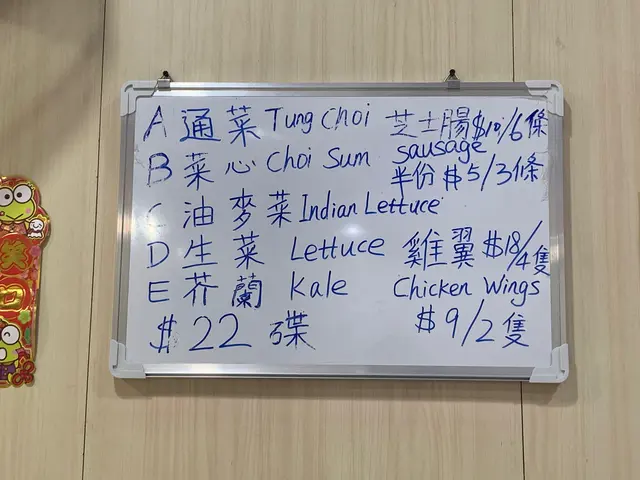 A 通菜 Tung Choi
B 菜心 Choi Sum
C 油麥菜 Indian Lettuce
D 生菜 Lettuce
E 芥蘭 Kale
$22 碟
芝士腸 $10/6條
sausage
半份 $5/3條
雞翼 $18/4隻
Chicken Wings
$9/2隻